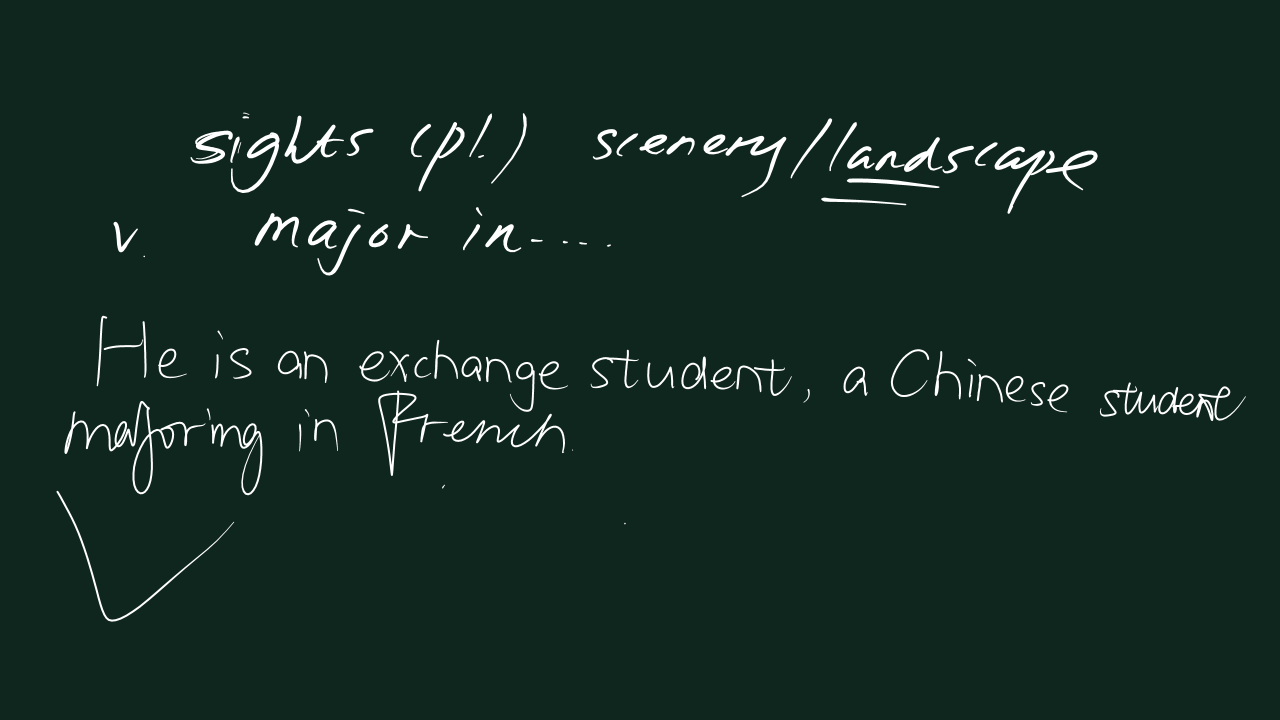 sights (pl.) scenery/landscape
v. major in-....
He is an exchange student, a Chinese student
majoring in French.